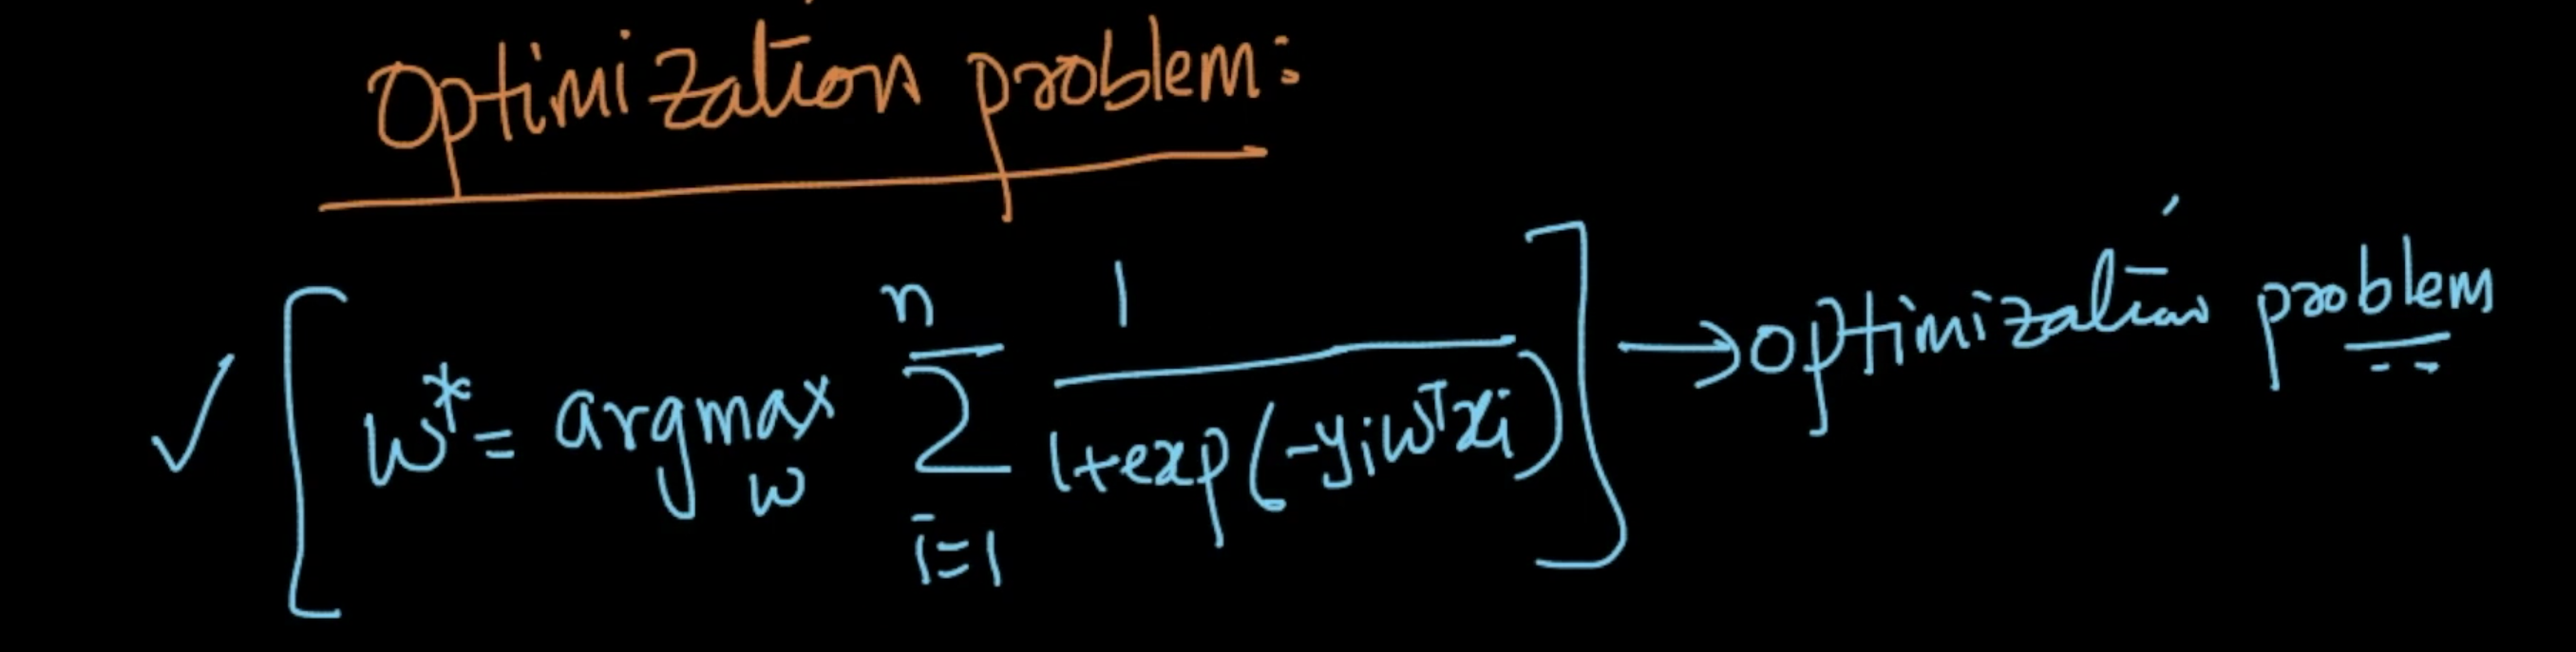 Optimization problem:
✓ [ w* = argmax_w Σ_{i=1}^{n} 1/(1+exp(-yiwᵀxi)) ] → optimization problem